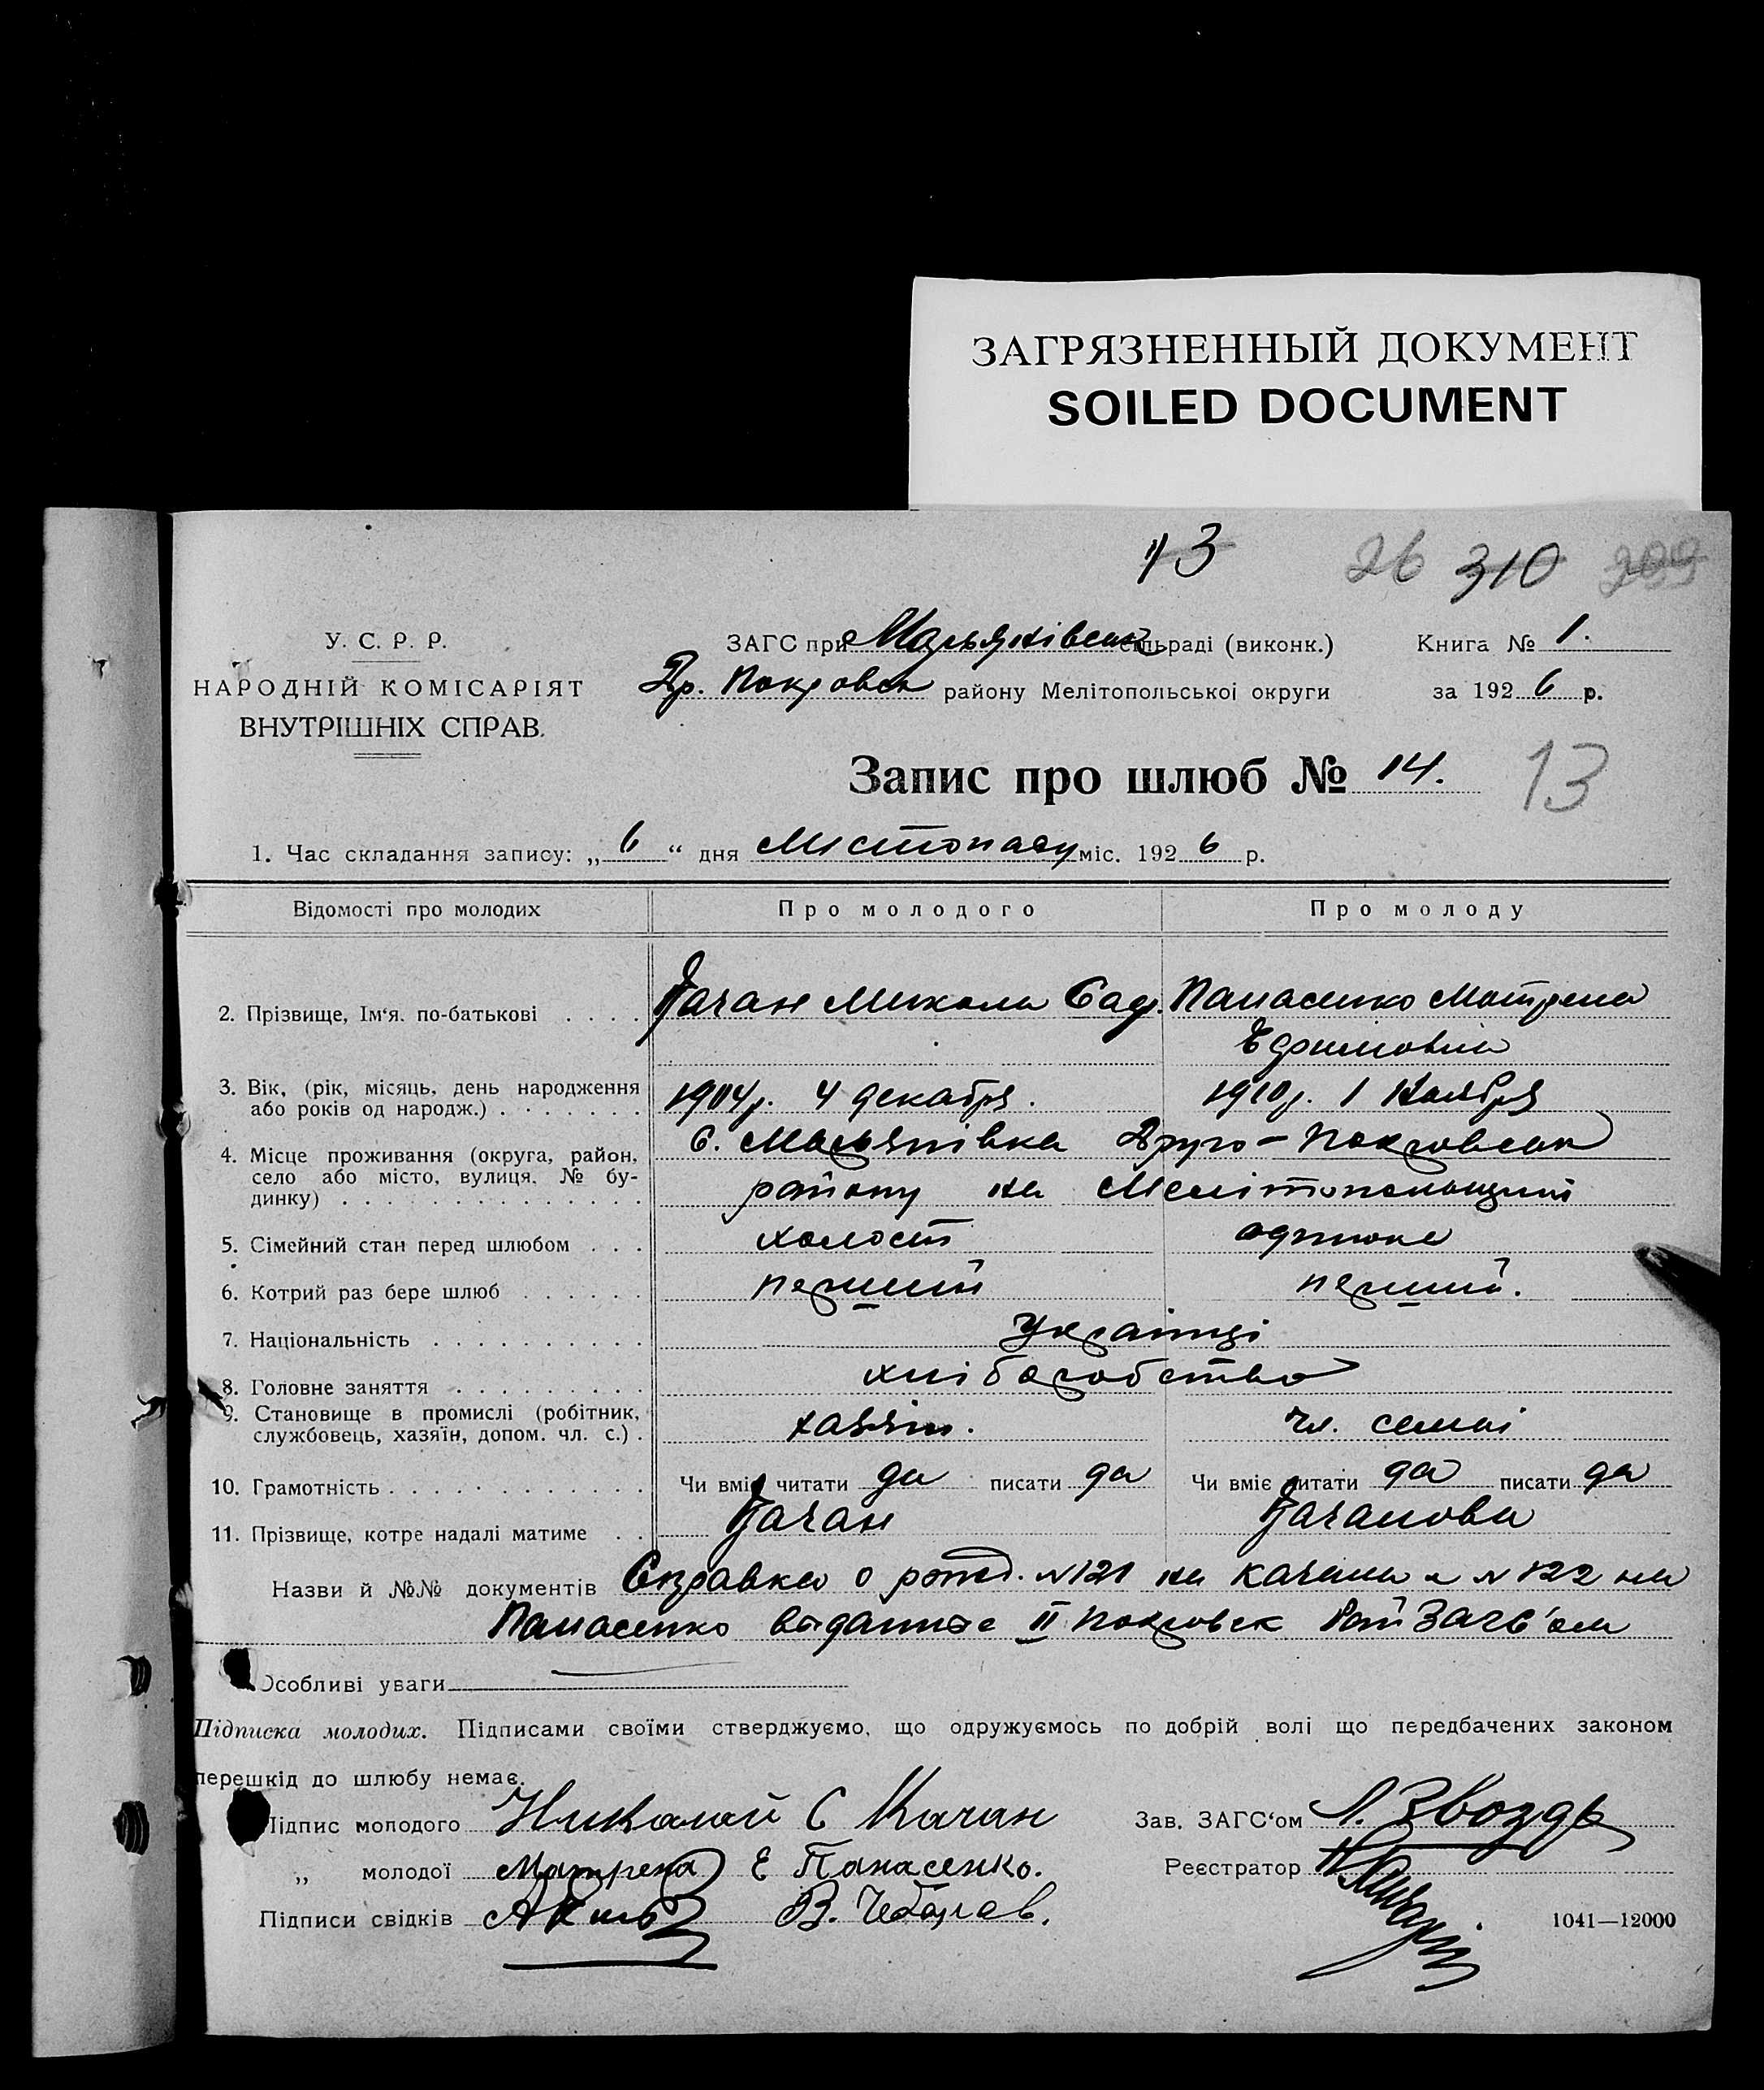 ЗАГРЯЗНЕННЫЙ ДОКУМЕНТ
SOILED DOCUMENT
13 26 310 209
У. С. Р. Р.
НАРОДНІЙ КОМІСАРІЯТ
ВНУТРІШНІХ СПРАВ.
ЗАГС при сільраді (виконк.) Книга № 1.
Др. Покровск району Мелітопольської округи за 192 6 р.
Запис про шлюб № 14. 13
1. Час складання запису: „ 6 “ дня Листопаду міс. 192 6 р.
Відомості про молодих Про молодого Про молоду
2. Прізвище, Ім‘я. по-батькові . . . . Качан Микола Сад. Панасенко Мотрена
Ефимовна
3. Вік, (рік, місяць, день народження
або років од народж.) . . . . . . . 1904 р. 4 декабря. 1910 р. 1 Ноября
4. Місце проживання (округа, район,
село або місто, вулиця, № бу-
динку) . . . . . . . . . . . . . . .
с. Друго-Покровськ
району на Мелітопольщині
5. Сімейний стан перед шлюбом . . . холост
6. Котрий раз бере шлюб . . . . . . перший перший.
7. Національність . . . . . . . . . . Українці
8. Головне заняття . . . . . . . . . хліборобство
9. Становище в промислі (робітник,
службовець, хазяїн, допом. чл. с.) . хазяін. чл. семьі
10. Грамотність . . . . . . . . . . . . Чи вміє читати да писати да Чи вміє читати да писати да
11. Прізвище, котре надалі матиме . . Качан Качанова
Назви й №№ документів Справка о рожд. №121 на Качана и №122 на
Панасенко выданные II Покровск Рай Загс'ом
Особливі уваги
Підписка молодих. Підписами своїми стверджуємо, що одружуємось по добрій волі що передбачених законом
перешкід до шлюбу немає.
Підпис молодого Николай С Качан Зав. ЗАГС‘ом Л. Звоздь
„ молодої Матрена Е Панасенко. Реєстратор
Підписи свідків В. 1041—12000